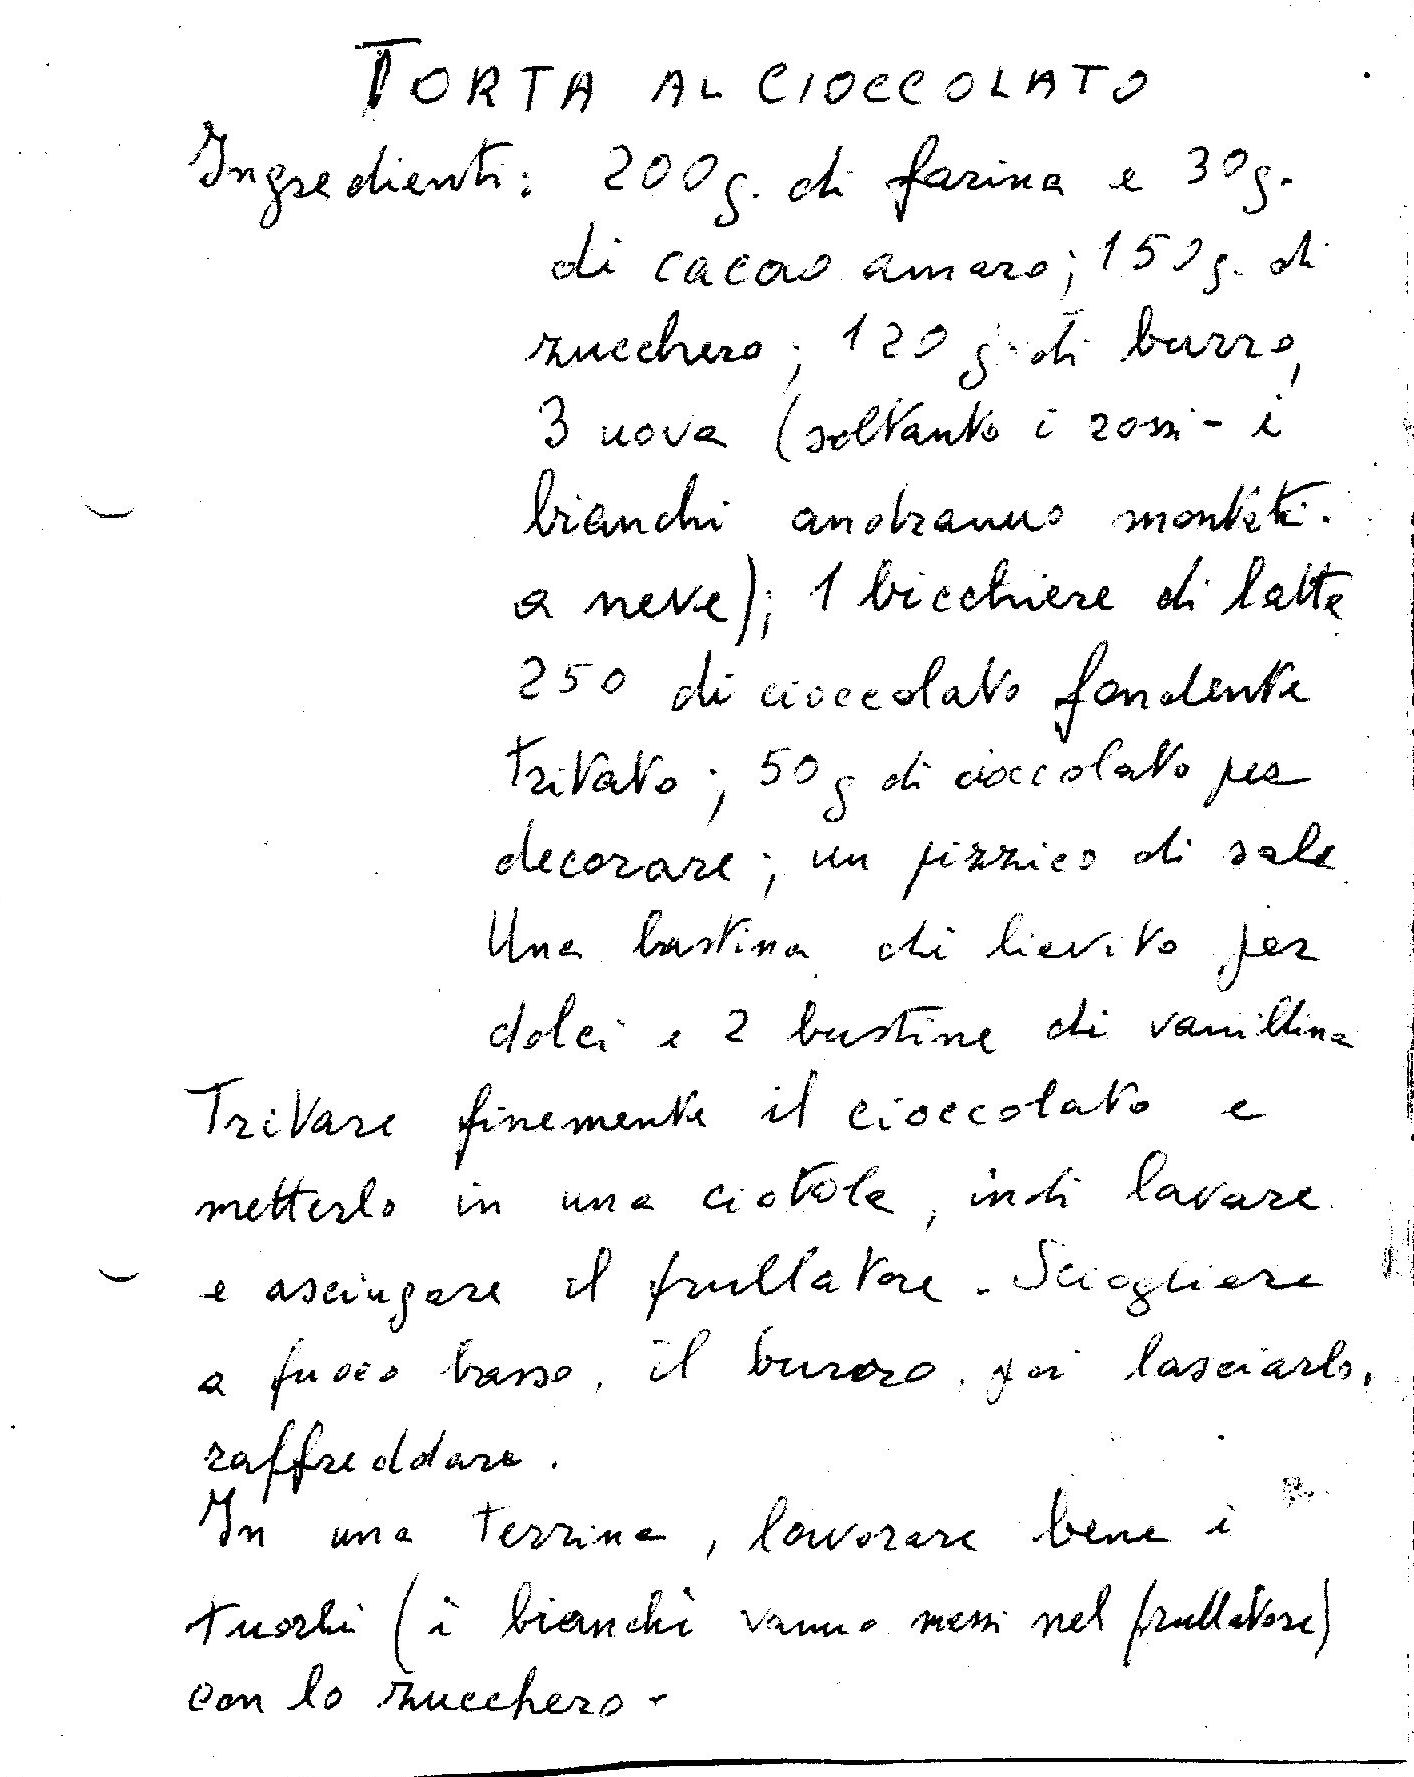 TORTA AL CIOCCOLATO
Ingredienti: 200g. di farina e 30g.
di cacao amaro; 150g. di
zucchero; 120 g. di burro,
3 uova (soltanto i rossi - i
bianchi andranno montati.
a neve); 1 bicchiere di latte
250 di cioccolato fondente
tritato; 50g di cioccolato per
decorare; un pizzico di sale
Una bustina di lievito per
dolci e 2 bustine di vanillina
Tritare finemente il cioccolato e
metterlo in una ciotola, indi lavare
e asciugare il frullatore. Sciogliere
a fuoco basso, il burro, poi lasciarlo,
raffreddare.
In una terrina, lavorare bene i
tuorli (i bianchi vanno messi nel frullatore)
con lo zucchero -